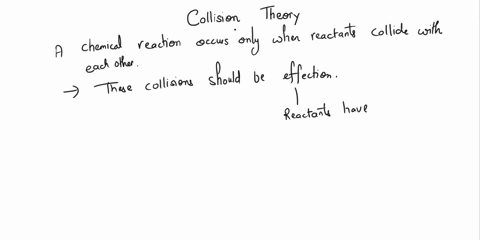 Collision Theory
A chemical reaction occurs only when reactants collide with
each other.
→ These collisions should be effection.
Reactants have